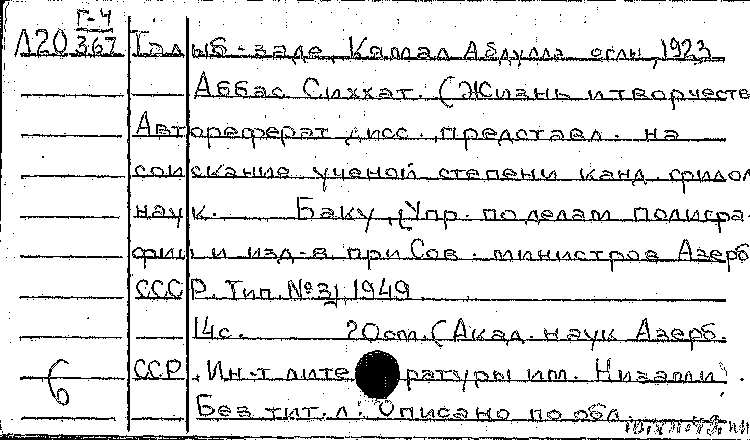 Г-4
Л20 367 Талыб-заде, Камал Абдулла оглы, 1923
Аббас Сиххат. (Жизнь и творчеств
Автореферат дисс., представл. на
соискание ученой степени канд. филол
наук. Баку, [Упр. по делам полигра-
фии и изд-в при Сов. министров Азерб
ССР. Тип. №3], 1949
14с. 20см. (Акад. наук Азерб.
ССР. Ин-т литературы им. Низами).
6
Без тит. л. Описано по обл.